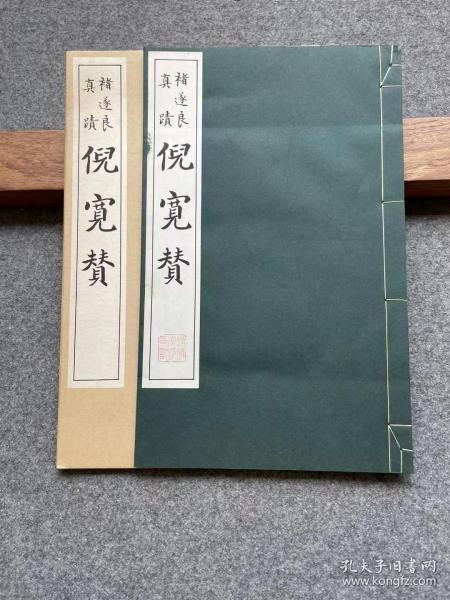 褚遂良
真蹟
倪寬贊
褚遂良
真蹟
倪寬贊
孔夫子旧书网
www.kongfz.com